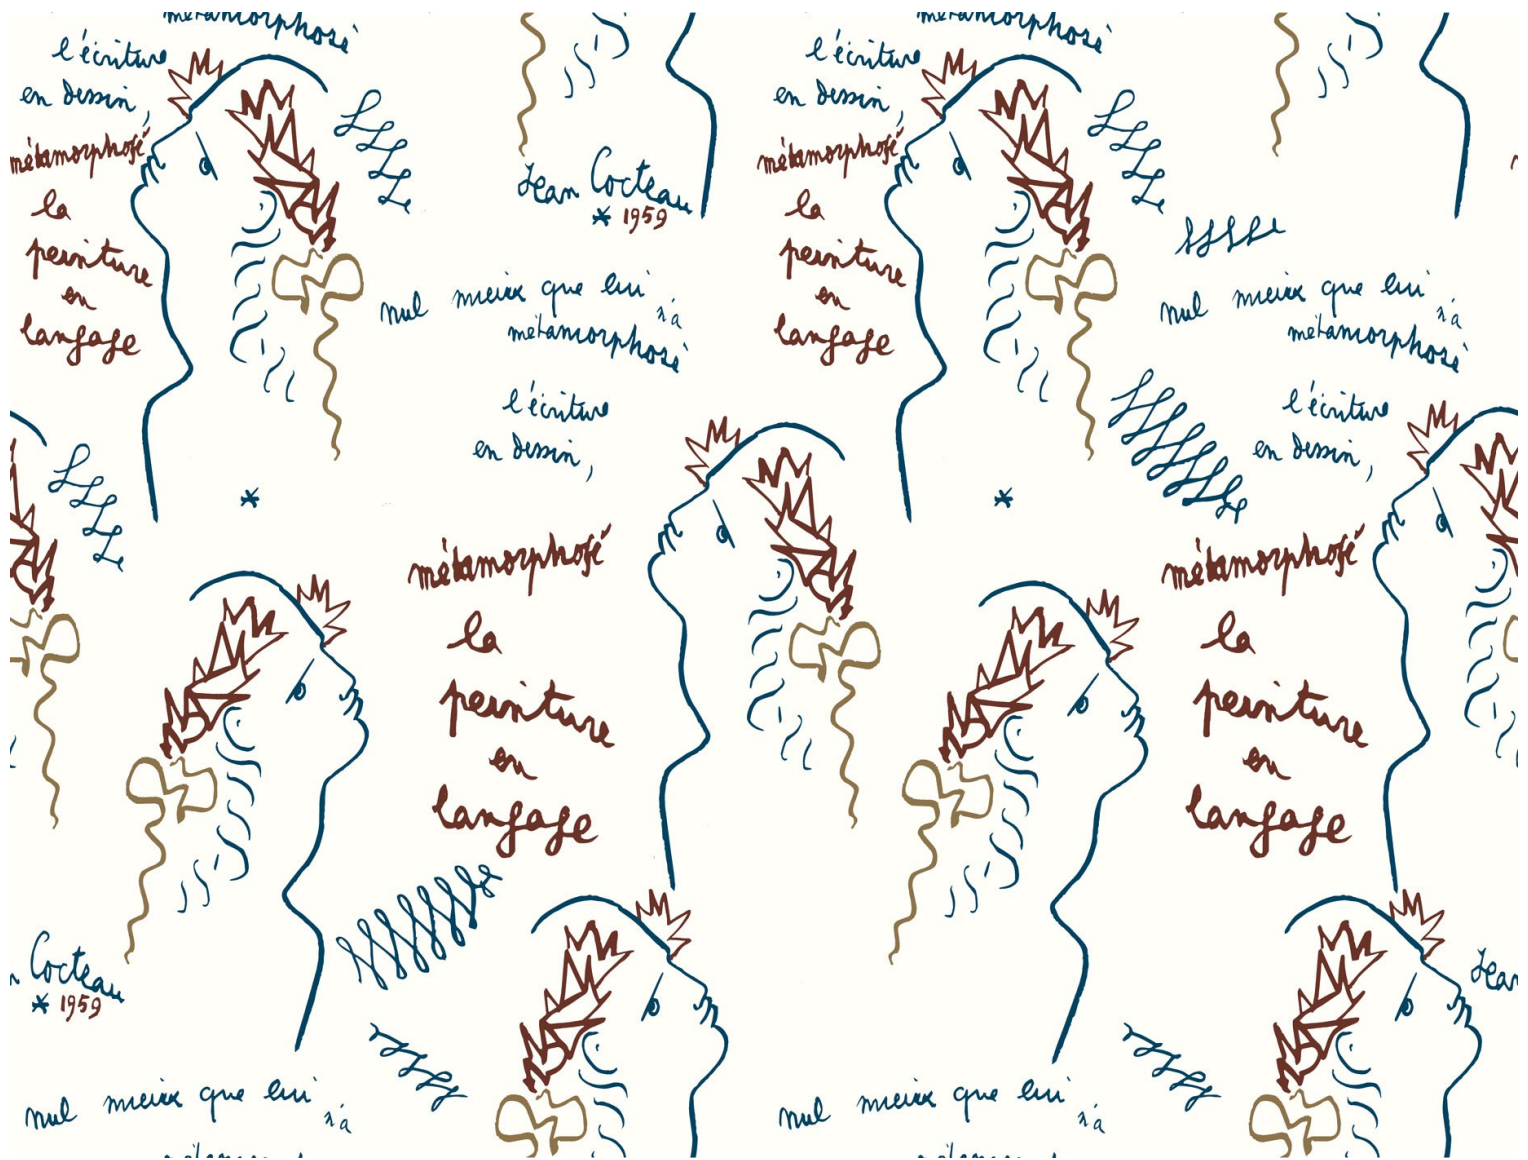 métamorphosé
l'écriture
en dessin,
métamorphosé
la
peinture
en
langage
Jean Cocteau
* 1959
métamorphosé
l'écriture
en dessin,
métamorphosé
la
peinture
en
langage
nul mieux que lui n'a
métamorphosé
l'écriture
en dessin,
métamorphosé
la
peinture
en
langage
nul mieux que lui n'a
métamorphosé
l'écriture
en dessin,
métamorphosé
la
peinture
en
langage
Cocteau
* 1959
Jean
nul mieux que lui n'a
nul mieux que lui n'a